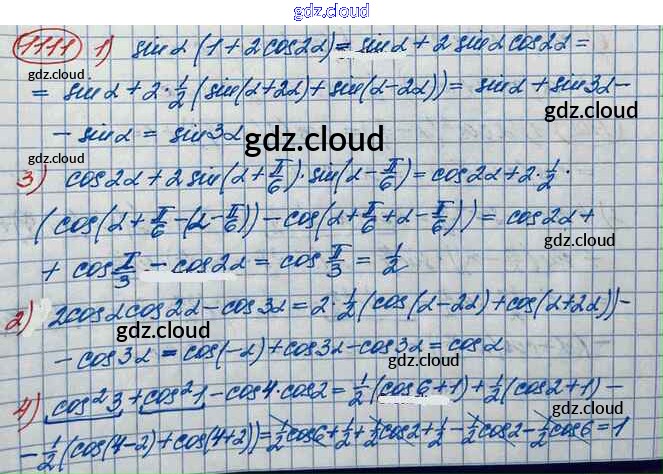 gdz.cloud
1111 1) sin α (1 + 2 cos 2α) = sin α + 2 sin α cos 2α =
gdz.cloud
= sin α + 2 · 1/2 (sin(α+2α) + sin(α-2α)) = sin α + sin 3α -
gdz.cloud
- sin α = sin 3α
gdz.cloud
3) cos 2α + 2 sin(α + π/6) · sin(α - π/6) = cos 2α + 2 · 1/2 ·
(cos(α + π/6 - (α - π/6)) - cos(α + π/6 + α - π/6)) = cos 2α +
gdz.cloud
+ cos π/3 - cos 2α = cos π/3 = 1/2
2) 2 cos α cos 2α - cos 3α = 2 · 1/2 (cos(α-2α) + cos(α+2α)) -
gdz.cloud
- cos 3α = cos(-α) + cos 3α - cos 3α = cos α
gdz.cloud
4) cos² 3 + cos² 1 - cos 4 · cos 2 = 1/2 (cos 6 + 1) + 1/2 (cos 2 + 1) -
gdz.cloud
- 1/2 (cos(4-2) + cos(4+2)) = 1/2 cos 6 + 1/2 + 1/2 cos 2 + 1/2 - 1/2 cos 2 - 1/2 cos 6 = 1